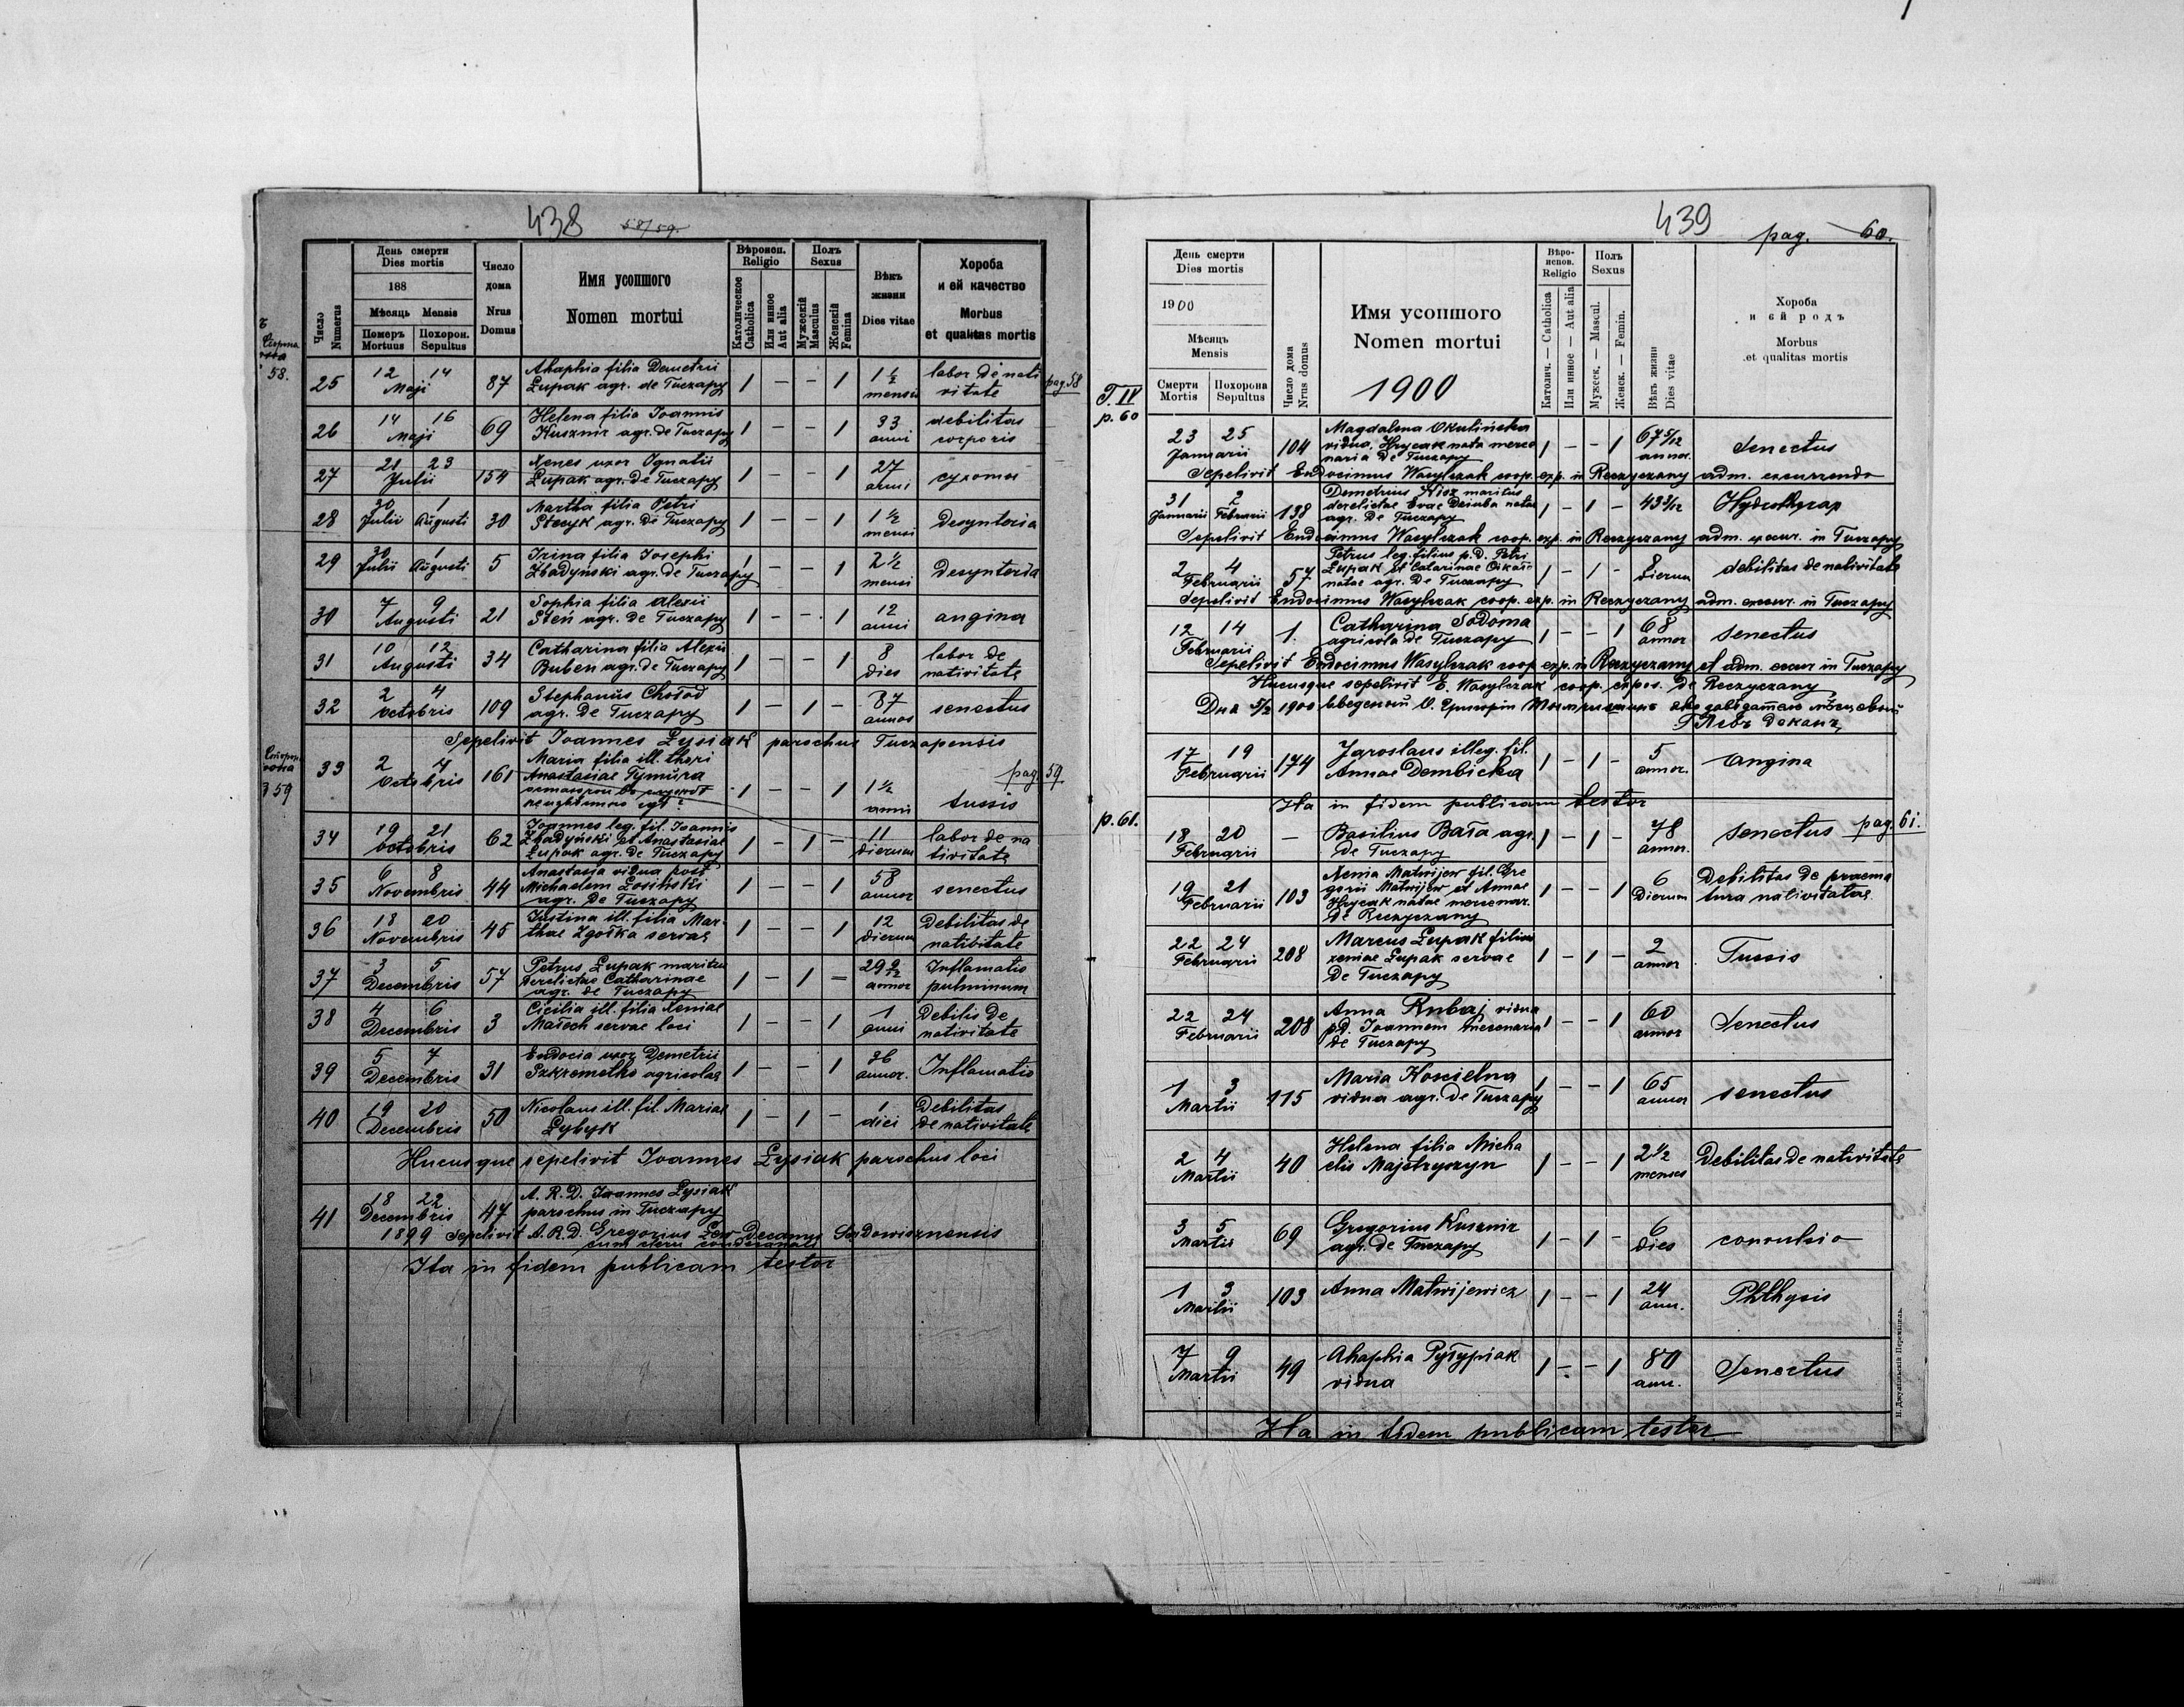 438 58/59.
День смерти
Dies mortis
188
Мѣсяць Mensis
Померъ Похорон.
Mortuus Sepultus
Число
Numerus
Число
дома
Nrus
Domus
Имя усопшого
Nomen mortui
Вѣроисп.
Religio
Католическое
Catholica
Или инное
Aut alia
Полъ
Sexus
Мужескій
Masculus
Женскій
Femina
Вѣкъ
жизни
Dies vitae
Хороба
и ей качество
Morbus
et qualitas mortis
58.
25 12 14 Maji 87 Ahaphia filia Demetrii
Łupak agr. de Tuczapy 1 — — 1 1 1/2 mensis labor de nati
vitate pag 58
26 14 16 Maji 69 Helena filia Joannis
Kusznir agr. de Tuczapy 1 — — 1 33 anni debilitas
corporis
27 21 23 Julii 154 Xenes uxor Ignatii
Łupak agr. de Tuczapy 1 — — 1 27 anni
28 30 Julii 1 Augusti 30 Martha filia Petri
Stecyk agr. de Tuczapy 1 — — 1 1 1/2 mensi desynteria
29 30 Julii 1 Augusti 5 Irina filia Josephi
Zbadyński agr. de Tuczapy 1 — — 1 2 1/2 mensi desynteria
30 7 9 Augusti 21 Sophia filia Alexii
Steń agr. de Tuczapy 1 — — 1 12 anni angina
31 10 12 Augusti 34 Catharina filia Alexii
Buben agr. de Tuczapy 1 — — 1 8 dies labor de
nativitate
32 2 4 Octobris 109 Stephanus Chołod
agr. de Tuczapy 1 — 1 — 87 annos senectus
Sepelivit Joannes Łysiak parochus Tuczapensis
59
33 2 4 Octobris 161 Maria filia ill. thori
Anastasiae Tymura
1 — — 1 1 1/2 anni tussis pag. 59.
34 19 21 Octobris 62 Joannes leg. fil. Joannis
Zbadyński et Anastasiae
Łupak agr. de Tuczapy 1 — 1 — 11 dierum labor de na
tivitate
35 6 8 Novembris 44 Anastasia vidua post
Michaelem Łosiński
agr. de Tuczapy 1 — — 1 58 annor senectus
36 18 20 Novembris 45 Justina ill. filia Mar-
thae Zgołka servae 1 — — 1 12 dierum Debilitas de
natibitate
37 3 5 Decembris 57 Petrus Łupak maritus
derelictae Catharinae
agr. de Tuczapy 1 — 1 — 29 9/12 annor Inflamatio
pulminum
38 4 6 Decembris 3 Cicilia ill. filia Xeniae
Małech servae loci 1 — — 1 1 anni Debilis de
nativitate
39 5 7 Decembris 31 Eudocia uxor Demetrii
Szkromotko agricolae 1 — — 1 36 annor. Inflamatio
40 19 20 Decembris 50 Nicolaus ill. fil. Mariae
Łybyk 1 — 1 — 1 diei Debilitas
de nativitate
Hucusque sepelivit Joannes Łysiak parochus loci
41 18 22 Decembris 47 A. R. D. Joannes Łysiak
parochus in Tuczapy
1899 Sepelivit A. R. D. Gregorius Lew Decanus Sądowisznensis
cum clero condecanali
Ita in fidem publicam testor
439 pag. 60.
День смерти
Dies mortis
1900
Мѣсяцъ
Mensis
Смерти Похорона
Mortis Sepultus
Число дома
Nrus domus
Имя усопшого
Nomen mortui
1900
Вѣро-
испов.
Religio
Католич. — Catholica
Или инное — Aut alia
Полъ
Sexus
Мужеск. — Mascul.
Женск. — Femin.
Вѣкъ жизни
Dies vitae
Хороба
и ей родъ
Morbus
et qualitas mortis
T. IV
p. 60
23 25 Januarii 104 Magdalena Okulińska
vidua, Hrycak nata merce
naria de Tuczapy 1 — — 1 67 5/12 annor. Senectus
Sepelivit Eudocimus Wasylczak coop. exp. in Reczyczany adm. excurrendo
31 Januarii 2 Februarii 138 Demetrius Kisz maritus
derelictae Evae Dziuba natae
agr. de Tuczapy 1 — 1 — 43 3/12 Hydrothyrap
Sepelivit Eudocimus Wasylczak coop. exp. in Reczyczany adm. excur. in Tuczapy
2 4 Februarii 57 Petrus leg. filius p.d. Petri
Łupak et Catarinae
natae agr. de Tuczapy 1 — 1 — 8 dierum debilitas de nativitate
Sepelivit Eudocimus Wasylczak coop. exp. in Reczyczany adm. excur. in Tuczapy
12 14 Februarii 1. Catharina Sodoma
agricola de Tuczapy 1 — — 1 68 annor senectus
Sepelivit Eudocimus Wasylczak coop exp. in Reczyczany et adm. excur in Tuczapy
Hucusque sepelivit E. Wasylczak coop. expos. de Reczyczany
Дня 5/2 1900 введеный О.
Г Левъ деканъ
17 19 Februarii 174 Jaroslaus illeg. fil.
Annae Dembicka 1 — 1 — 5 annor. angina
Ita in fidem publicam testor
p. 61.
18 20 Februarii — Basilius Bała agr.
de Tuczapy 1 — 1 — 78 annor. senectus pag. 61.
19 21 Februarii 103 Xenia Matwijew fil. Gre
gorii Matwijew et Annae
Hrycak natae mercenar.
de Reczyczany 1 — — 1 6 Dierum Debilitas de praema
tura nativitatae
22 24 Februarii 208 Marcus Łupak filius
xeniae Łupak servae
de Tuczapy 1 — 1 — 2 annor Tussis
22 24 Februarii 208 Anna Rubaj vidua
p.d. Joannem mercenaria
de Tuczapy 1 — — 1 60 annor Senectus
1 3 Martii 115 Maria Koscielna
vidua agr. de Tuczapy 1 — — 1 65 annor senectus
2 4 Martii 40 Helena filia Micha
elis Majstryszyn 1 — — 1 2 1/2 menses Debilitas de nativitate
3 5 Martii 69 Gregorius Kusznir
agr. de Tuczapy 1 — 1 — 6 dies convulsio
1 3 Martii 103 Anna Matwijewicz 1 — — 1 24 ann. Phthysis
7 9 Martii 49 Ahaphia Pyłypiak
vidua 1 — — 1 80 ann. Senectus
Ita in fidem publicam testor